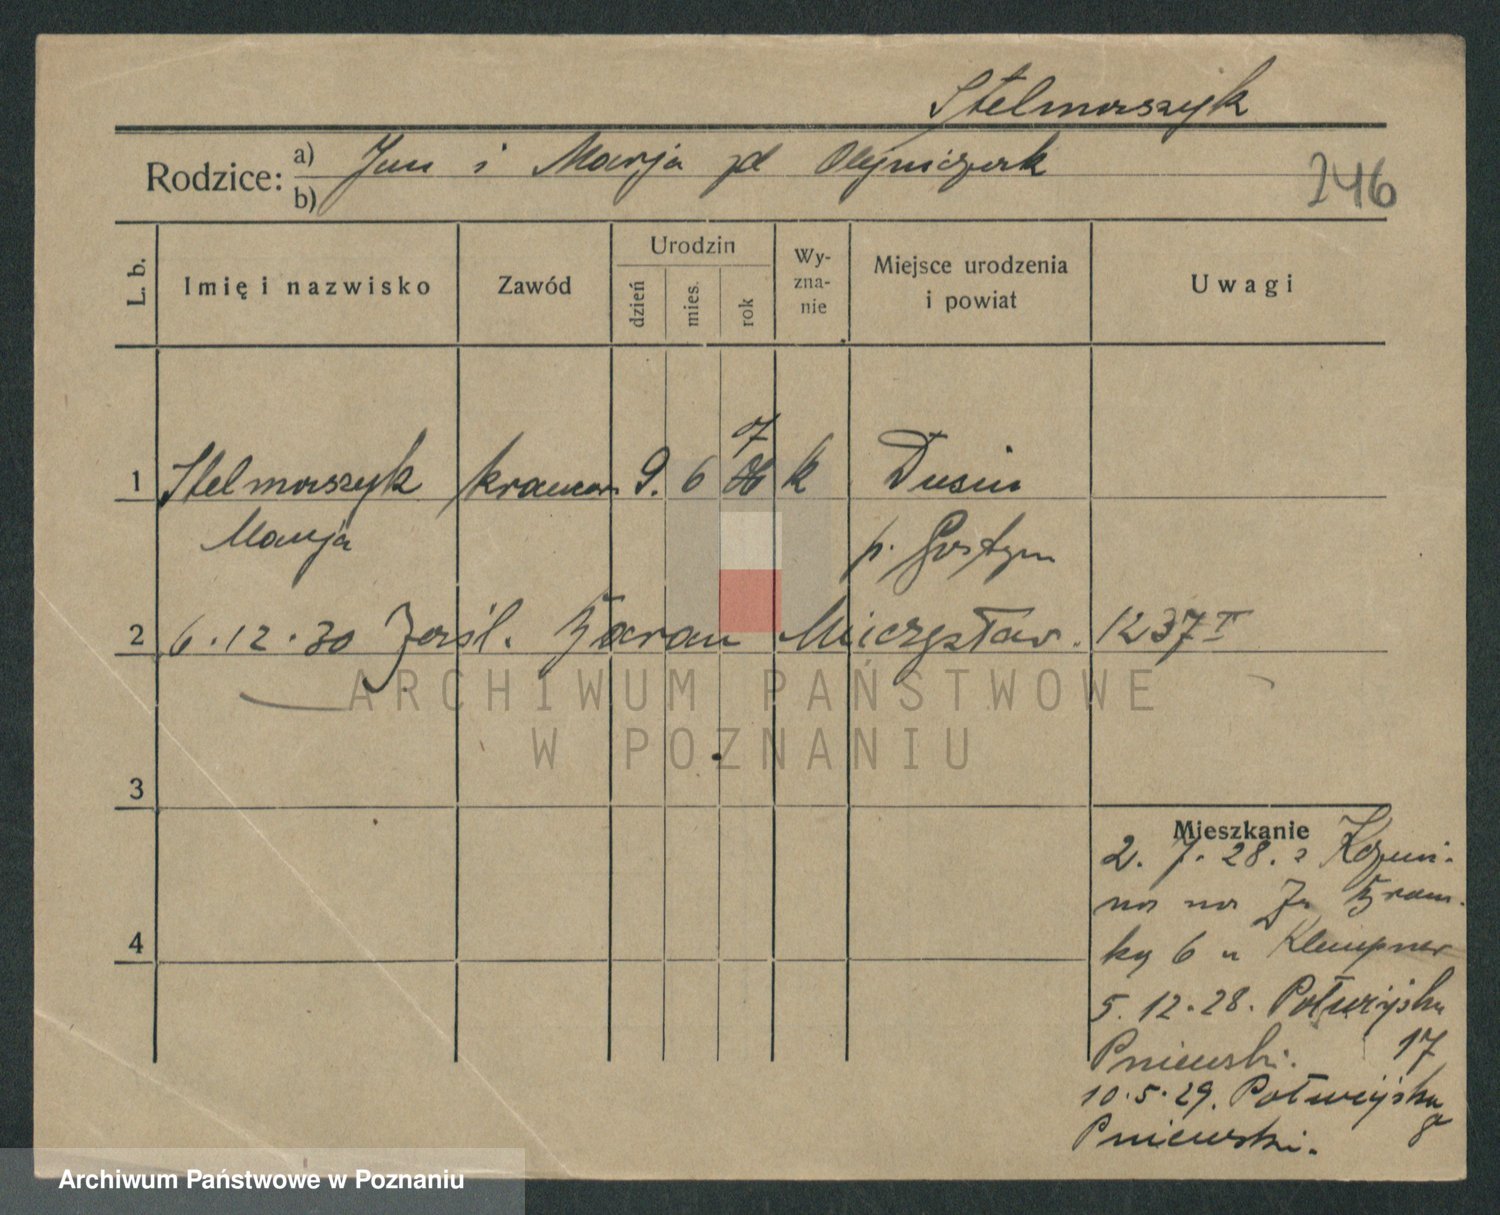 Stelmaszyk
Rodzice: a) Jan i Marja zd Olejniczak
b)
246
L. b.
Imię i nazwisko
Zawód
Urodzin
dzień
mies.
rok
Wy-
zna-
nie
Miejsce urodzenia
i powiat
Uwagi
7
1 Stelmaszyk 9. 6 06 k Dusin
Marja p. Gostyn
2 6.12.30 Mieczysław. 1237 I
ARCHIWUM PAŃSTWOWE
W POZNANIU
3
Mieszkanie
2. 7. 28. z Kozmi-
na na
4
ky 6 u Klempner
5. 12. 28.
Pniewski. 17
10.5.29.
Pniewski.
Archiwum Państwowe w Poznaniu